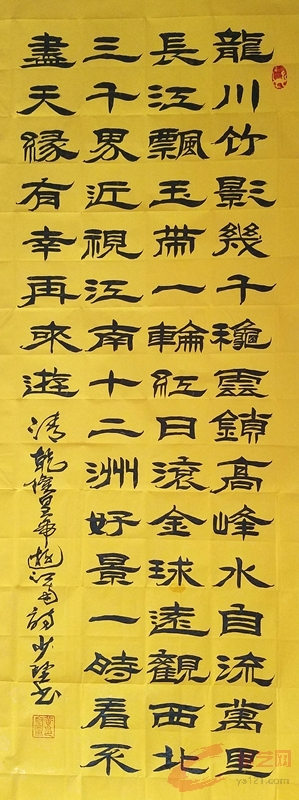 龍川竹影幾千穐雲鎖高峰水自流萬里
長江飄玉帶一輪紅日滾金球遠觀西北
三千界近視江南十二洲好景一時看不
盡天緣有幸再來遊
清乾隆皇帝遊江南詩
艺网
ys121.com